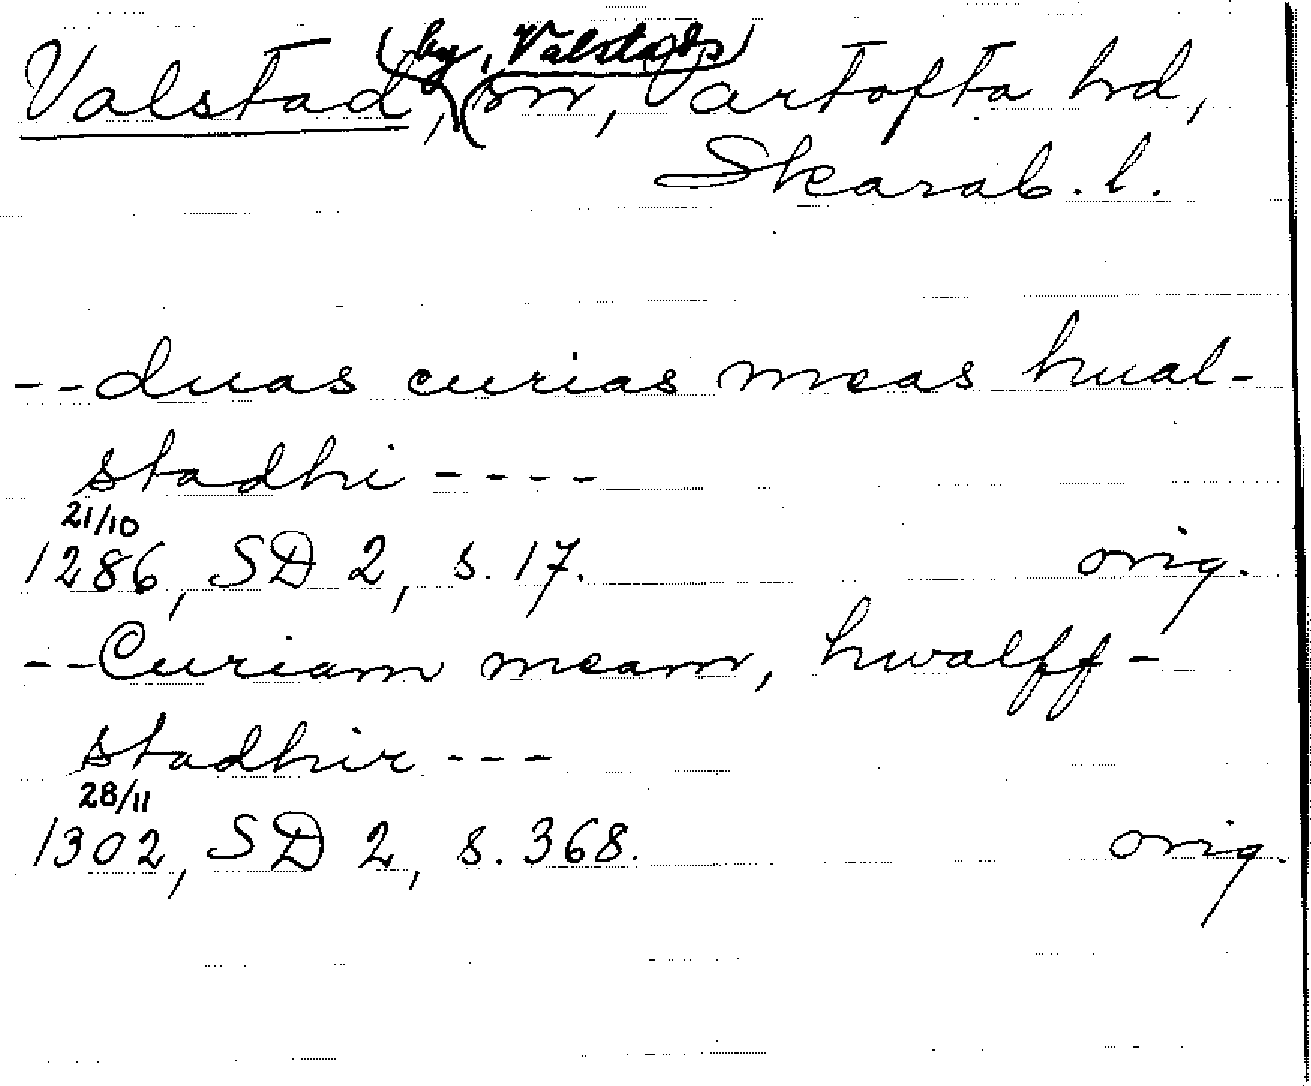 (by, Valstads)
Valstad, (sn, Vartofta hd,
Skarab. l.
--duas curias meas hual-
stadhi ----
21/10
1286, SD 2, s. 17. orig.
--Curiam meam, hwalff-
stadhir ---
28/11
1302, SD 2, s. 368. orig.